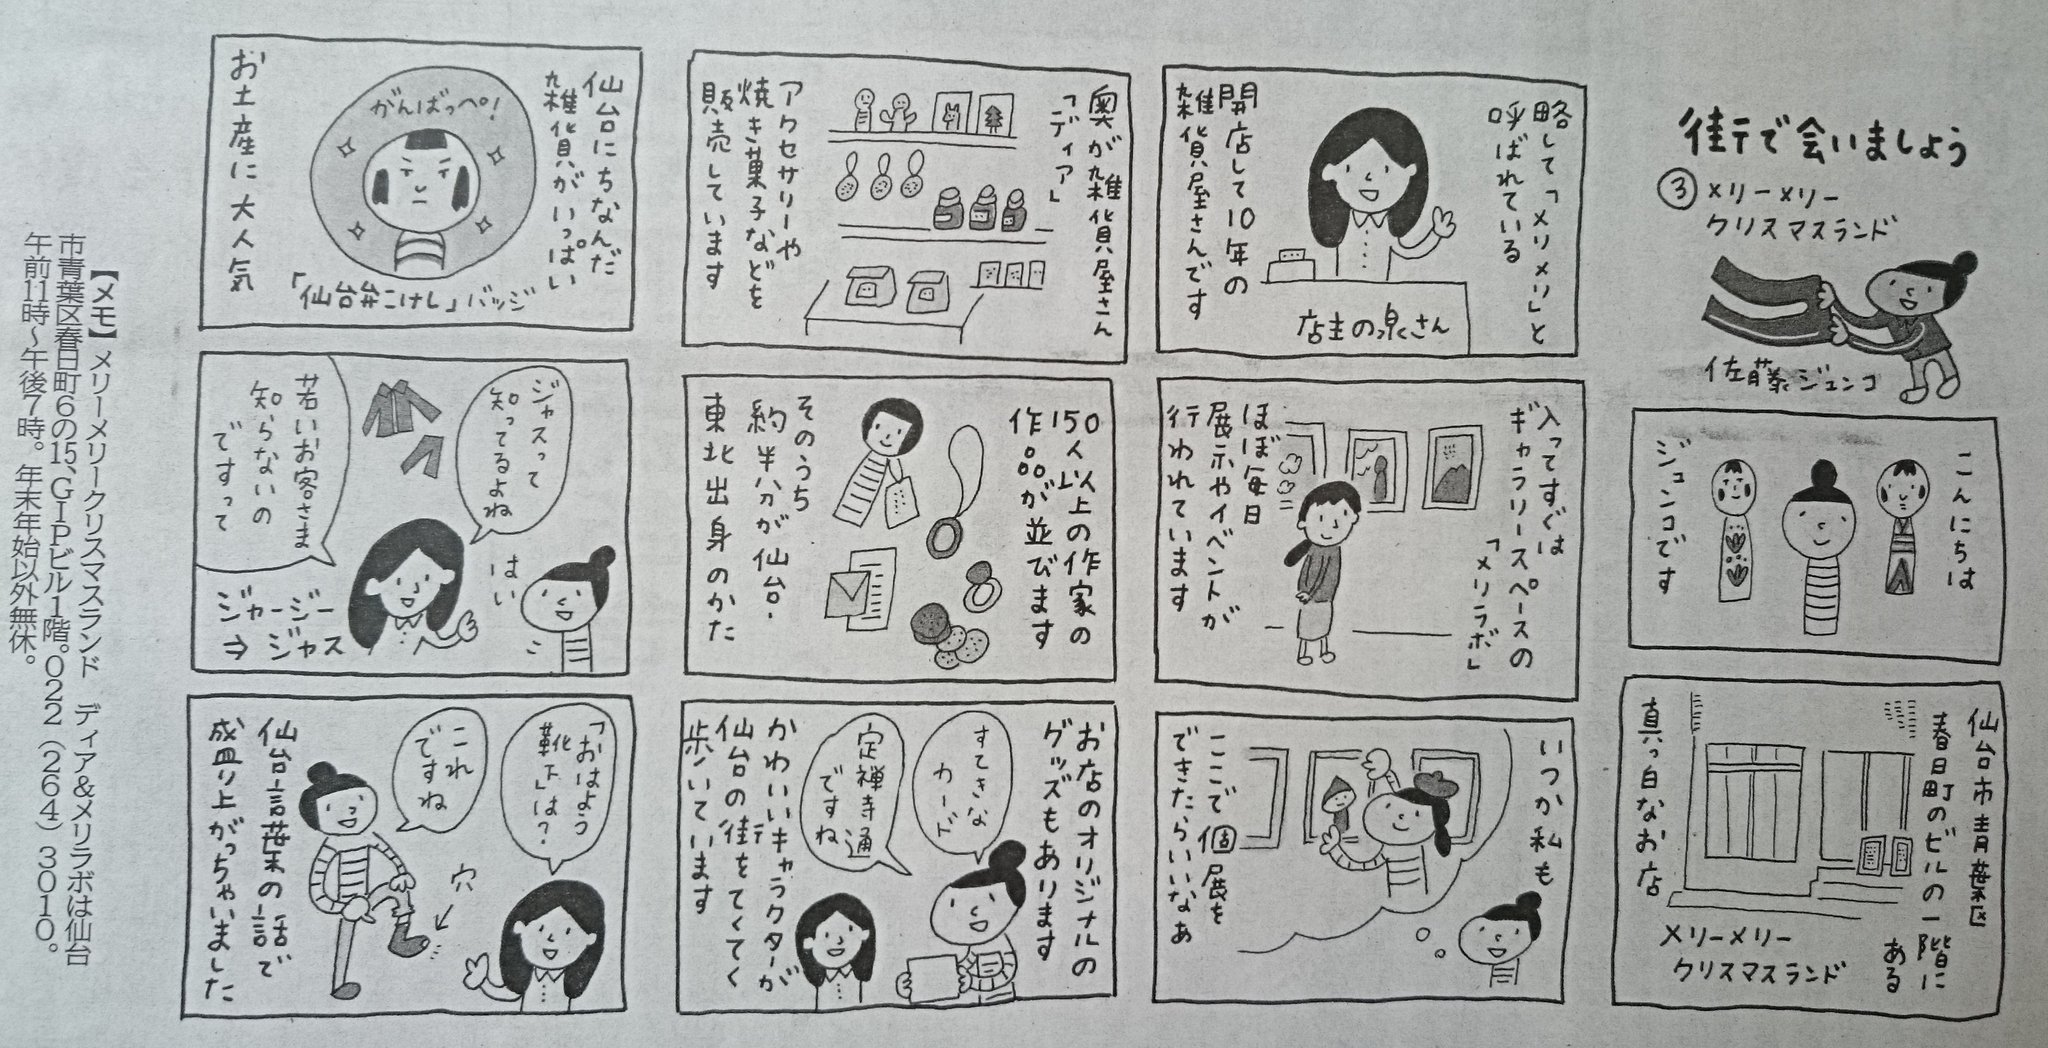 街で会いましょう
③メリーメリー
クリスマスランド
佐藤ジュンコ
こんにちは
ジュンコです
仙台市青葉区
春日町のビルの一階に
ある
真っ白なお店
メリーメリー
クリスマスランド
略して「メリメリ」と
呼ばれている
開店して10年の
雑貨屋さんです
店主の泉さん
入ってすぐは
ギャラリースペースの
「メリラボ」
ほぼ毎日
展示やイベントが
行われています
いつか私も
ここで個展を
できたらいいなぁ
奥が雑貨屋さん
「ディア」
アクセサリーや
焼き菓子などを
販売しています
150人以上の作家の
作品が並びます
そのうち
約半分が仙台・
東北出身のかた
お店のオリジナルの
グッズもあります
すてきな
カード
定禅寺通
ですね
かわいいキャラクターが
仙台の街をてくてく
歩いています
仙台にちなんだ
雑貨がいっぱい
がんばっぺ!
「仙台弁こけし」バッジ
お土産に大人気
ジャスって
知ってるよね
はい
若いお客さま
知らないの
ですって
ジャージー
⇒ジャス
「おはよう
靴下」は?
これ
ですね
穴
仙台言葉の話で
盛り上がっちゃいました
【メモ】メリーメリークリスマスランド ディア&メリラボは仙台
市青葉区春日町6の15、GIPビル1階。022(264)3010。
午前11時~午後7時。年末年始以外無休。